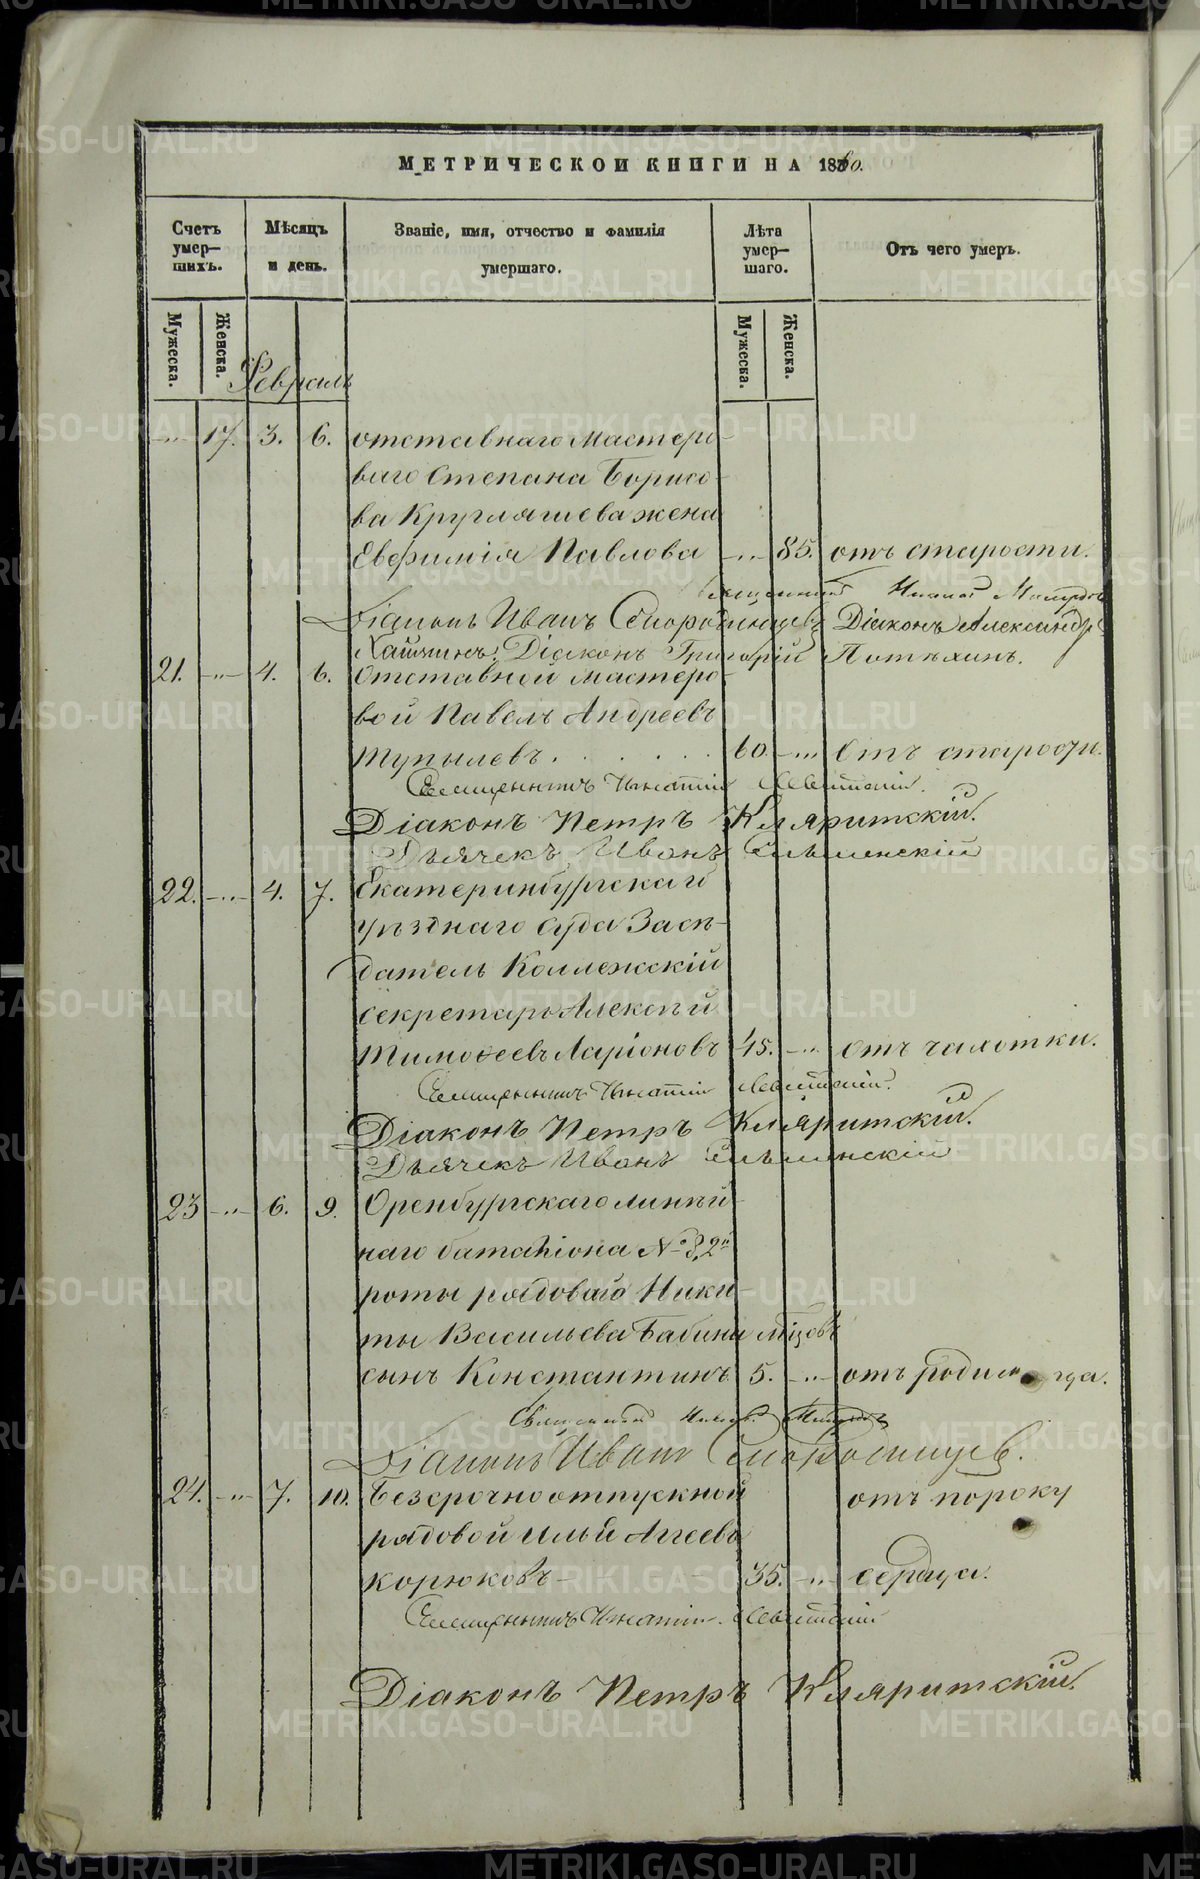 МЕТРИЧЕСКОЙ КНИГИ НА 1860.
Счетъ умер-шихъ.
Мѣсяцъ и день.
Званіе, имя, отчество и фамилія умершаго.
Лѣта умер-шаго.
Отъ чего умеръ.
Мужеска. Женска. Мужеска. Женска.
Февраль
17. 3. 6. отставнаго мастеро-
ваго Степана Борисо-
ва Кругляшева жена
Евфимія Павлова 85. отъ старости.
Священникъ
Діаконъ Иванъ Смородинцевъ Діаконъ Александръ
Діаконъ Григорій Потѣхинъ.
21. 4. 6. Отставной мастеро-
вой Павелъ Андреевъ
Тупылевъ 60. отъ старости.
Священникъ Игнатій Левитскій.
Діаконъ Петръ Кляритскій.
Дьячекъ Иванъ
22. 4. 7. Екатеринбургскаго
уѣзднаго суда Засѣ-
датель Коллежскій
секретарь Алексѣй
Тимофеевъ Ларіоновъ 45. отъ чахотки.
Священникъ Игнатій Левитскій.
Діаконъ Петръ Кляритскій.
Дьячекъ Иванъ
23 6. 9. Оренбургскаго линѣй-
наго баталіона № 3, 2й
роты рядоваго Ники-
ты Васильева Бабина
сынъ Константинъ 5. отъ родим
Священникъ
Діаконъ Иванъ Смородинцев.
24. 7. 10. Безсрочноотпускной отъ пороку
рядовой Илья Агеевъ
Корюковъ 35. сердца.
Священникъ Игнатій Левитскій
Діаконъ Петръ Кляритскій.
METRIKI.GASO-URAL.RU